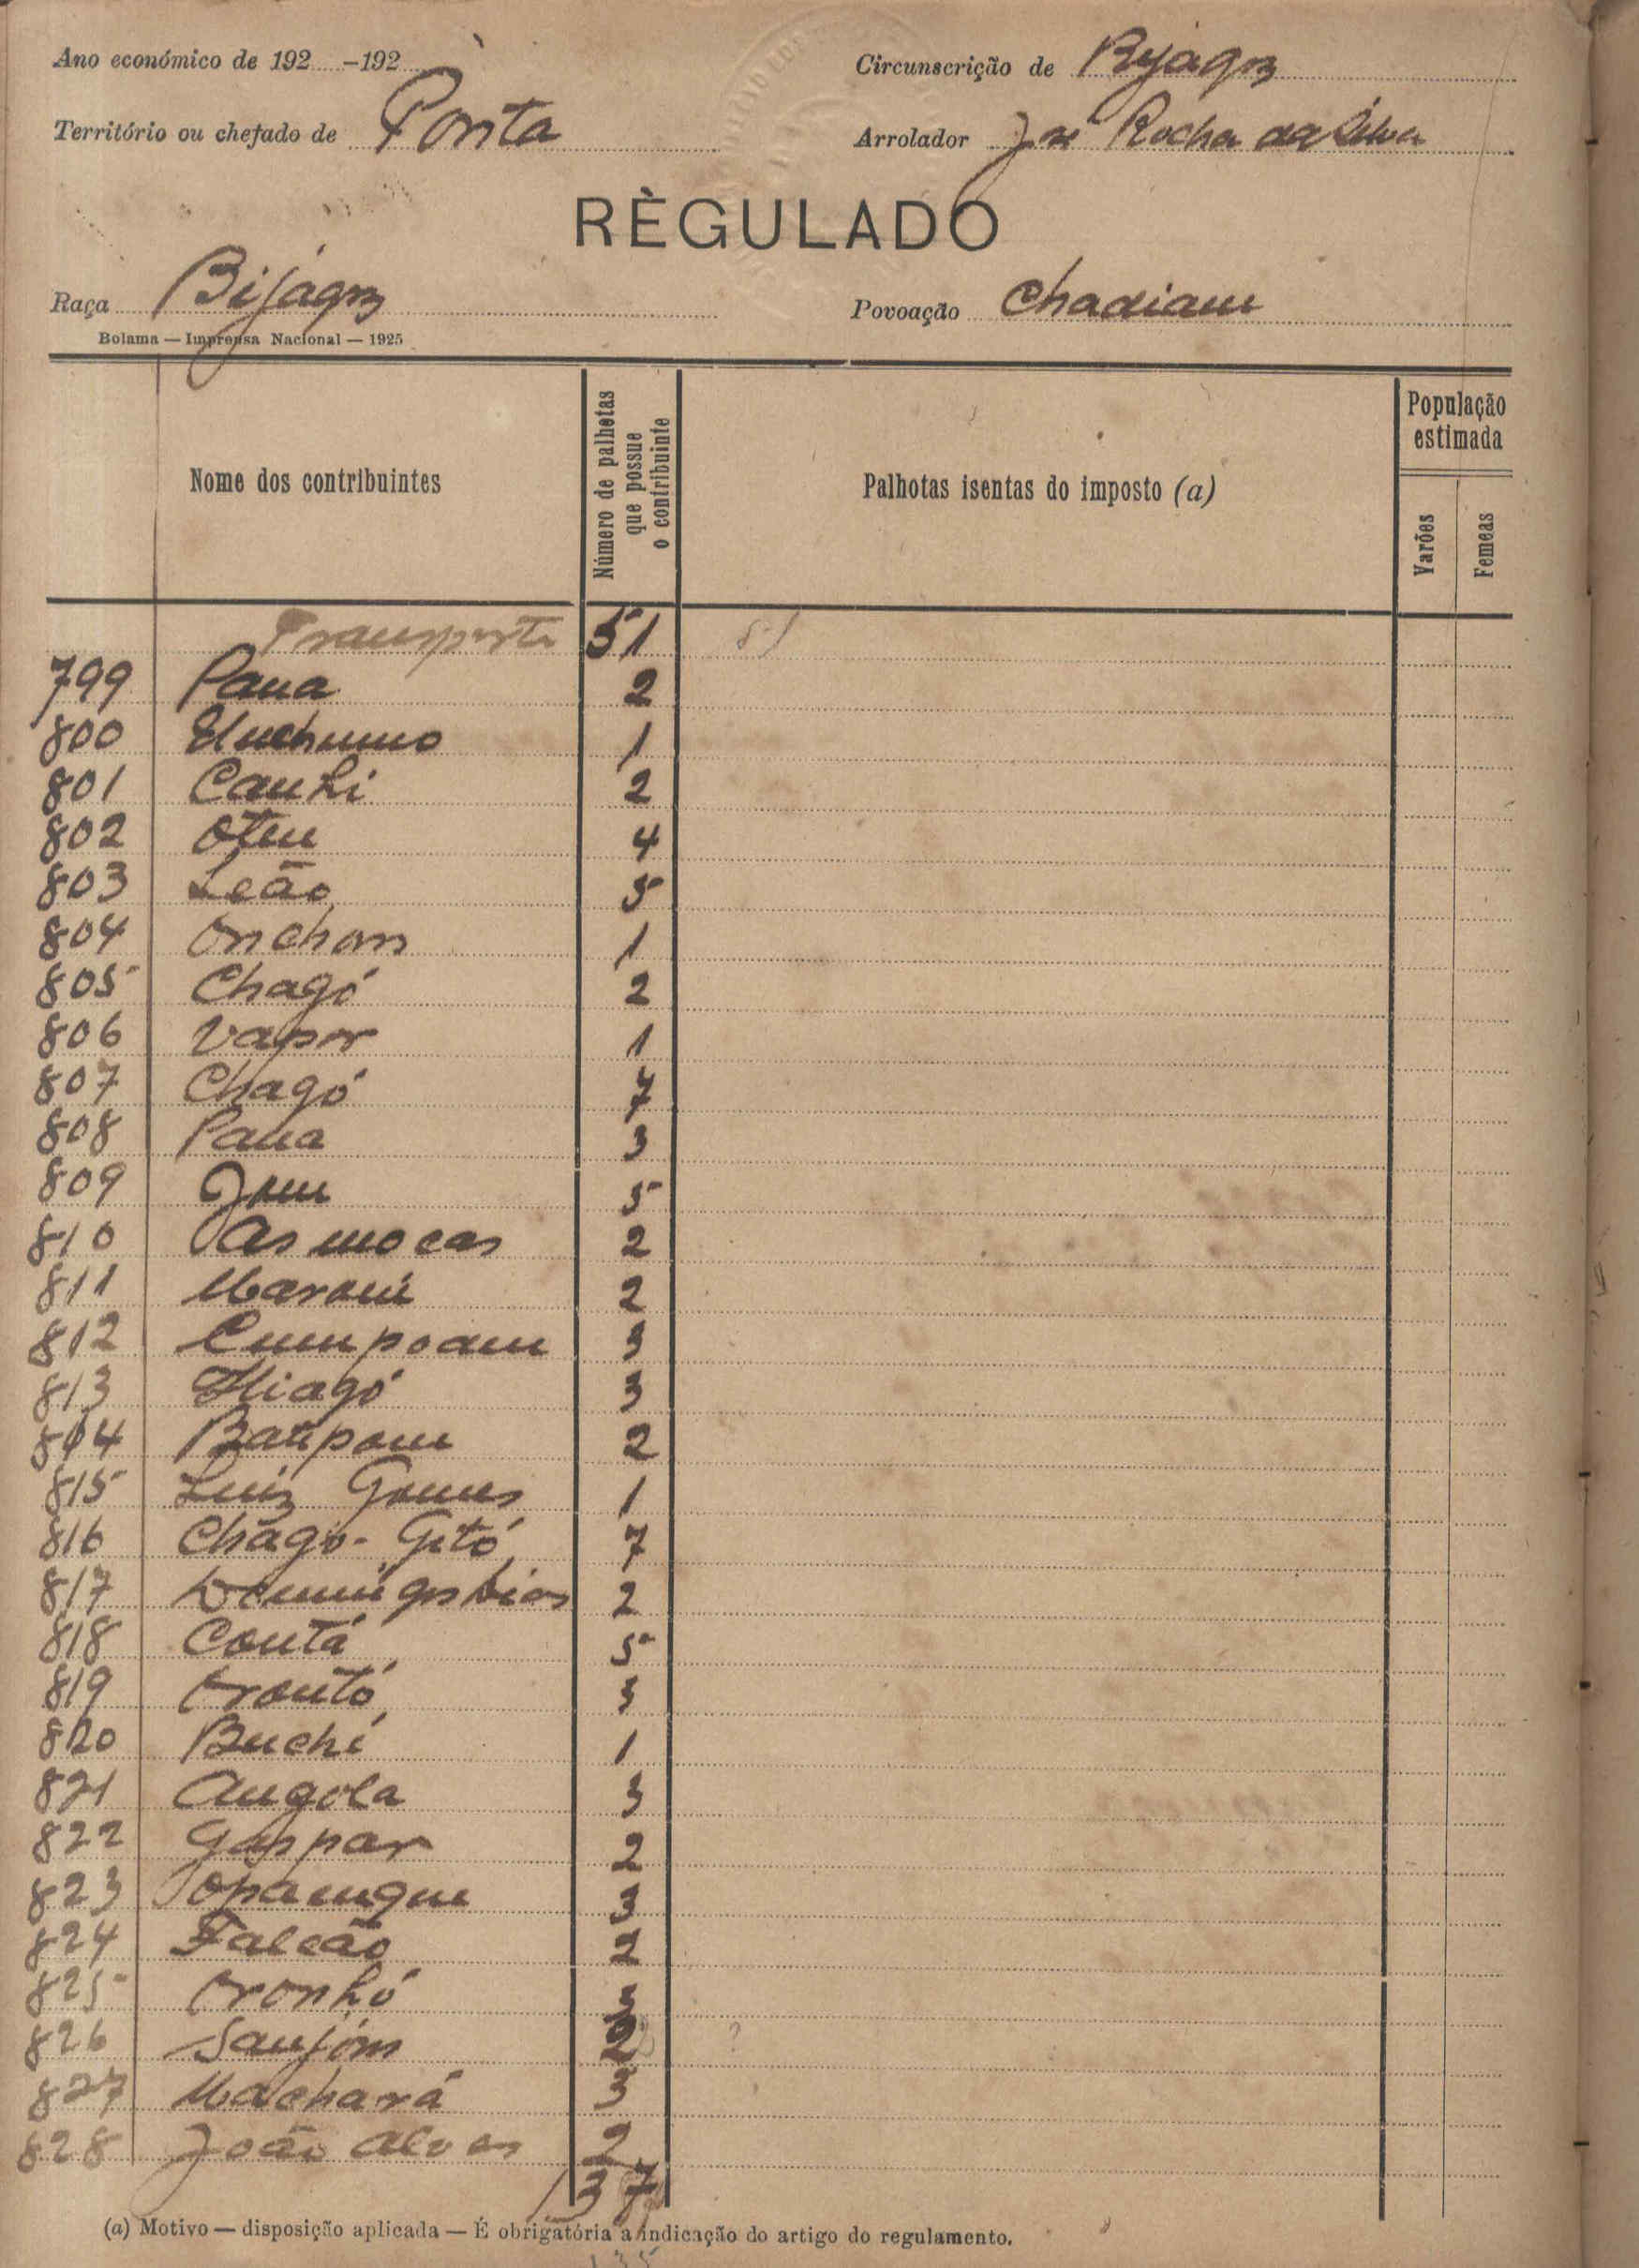 Ano económico de 192 -192
Circunscrição de Bijágoz
Território ou chefado de Ponta
Arrolador José Rocha da Silva
RÈGULADO
Raça Bijágoz
Povoação Chadiam
Bolama — Imprensa Nacional — 1925
Nome dos contribuintes
Número de palhotas que possue o contribuinte
Palhotas isentas do imposto (a)
População estimada
Varões
Femeas
Transporte 51 51
799 Pana 2
800 1
801 Canhi 2
802 Oteu 4
803 Leão 5
804 Onchon 1
805 Chagó 2
806 Vapor 1
807 Chagó 7
808 Pana 3
809 5
810 2
811 2
812 Cumpoam 3
813 3
814 2
815 Luiz Gomes 1
816 Chagó- Gitó 7
817 Domingos Dias 2
818 Contá 5
819 Orontó 3
820 Buchi 1
821 Angola 3
822 Gaspar 2
823 3
824 Falcão 2
825 Oronhó 3
826 Sanjóm 2 ?
827 Machará 3
828 João Alves 2
137
(a) Motivo — disposição aplicada — É obrigatória a indicação do artigo do regulamento.
135